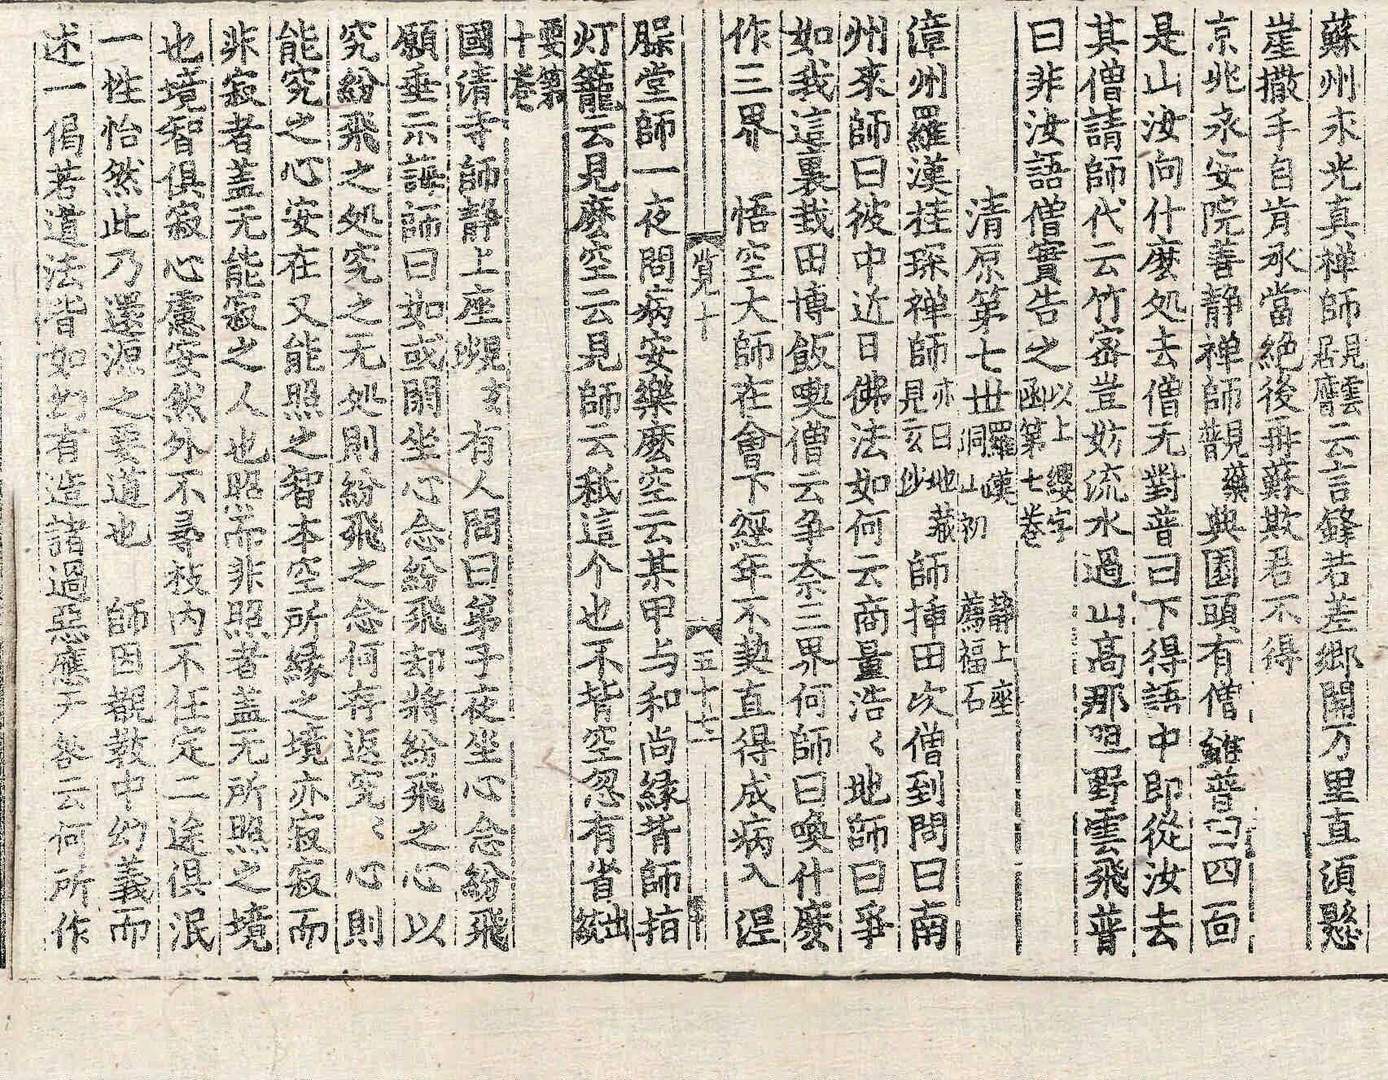 蘇州永光真禅師見雲居膺云言鋒若差鄉關万里直須懸
崖撒手自肯承當絕後再蘇欺君不得
京兆永安院善静禅師見樂普與園頭有僧辝普曰四面
是山汝向什麽処去僧无對普曰下得語中即從汝去
其僧請師代云竹密豈妨流水過山高那阻野雲飛普
曰非汝語僧實告之以上纓字函第七卷
清原第七世羅漢 洞山初 静上座 薦福石
漳州羅漢桂琛禅師亦曰地藏見玄沙師揷田次僧到問曰南
州來師曰彼中近日佛法如何云商量浩〻地師曰爭
如我這裏栽田博飯喫僧云争奈三界何師曰喚什麽
作三界 悟空大師在會下經年不契直得成病入涅
覧十 五十七
槃堂師一夜問病安樂麽空云某甲与和尚緣背師指
灯籠云見麽空云見師云秖這个也不背空忽有省出統
要第十卷
國清寺師静上座覩玄有人問曰弟子夜坐心念紛飛
願垂示誨師曰如或閑坐心念紛飛却將紛飛之心以
究紛飛之処究之无処則紛飛之念何存返究〻心則
能究之心安在又能照之智本空所縁之境亦寂寂而
非寂者盖无能寂之人也照而非照者盖无所照之境
也境智俱寂心慮安然外不尋枝内不住定二途俱泯
一性怡然此乃還源之要道也 師因覩敎中幻義而
述一偈若道法皆如幻有造諸過惡應无咎云何所作